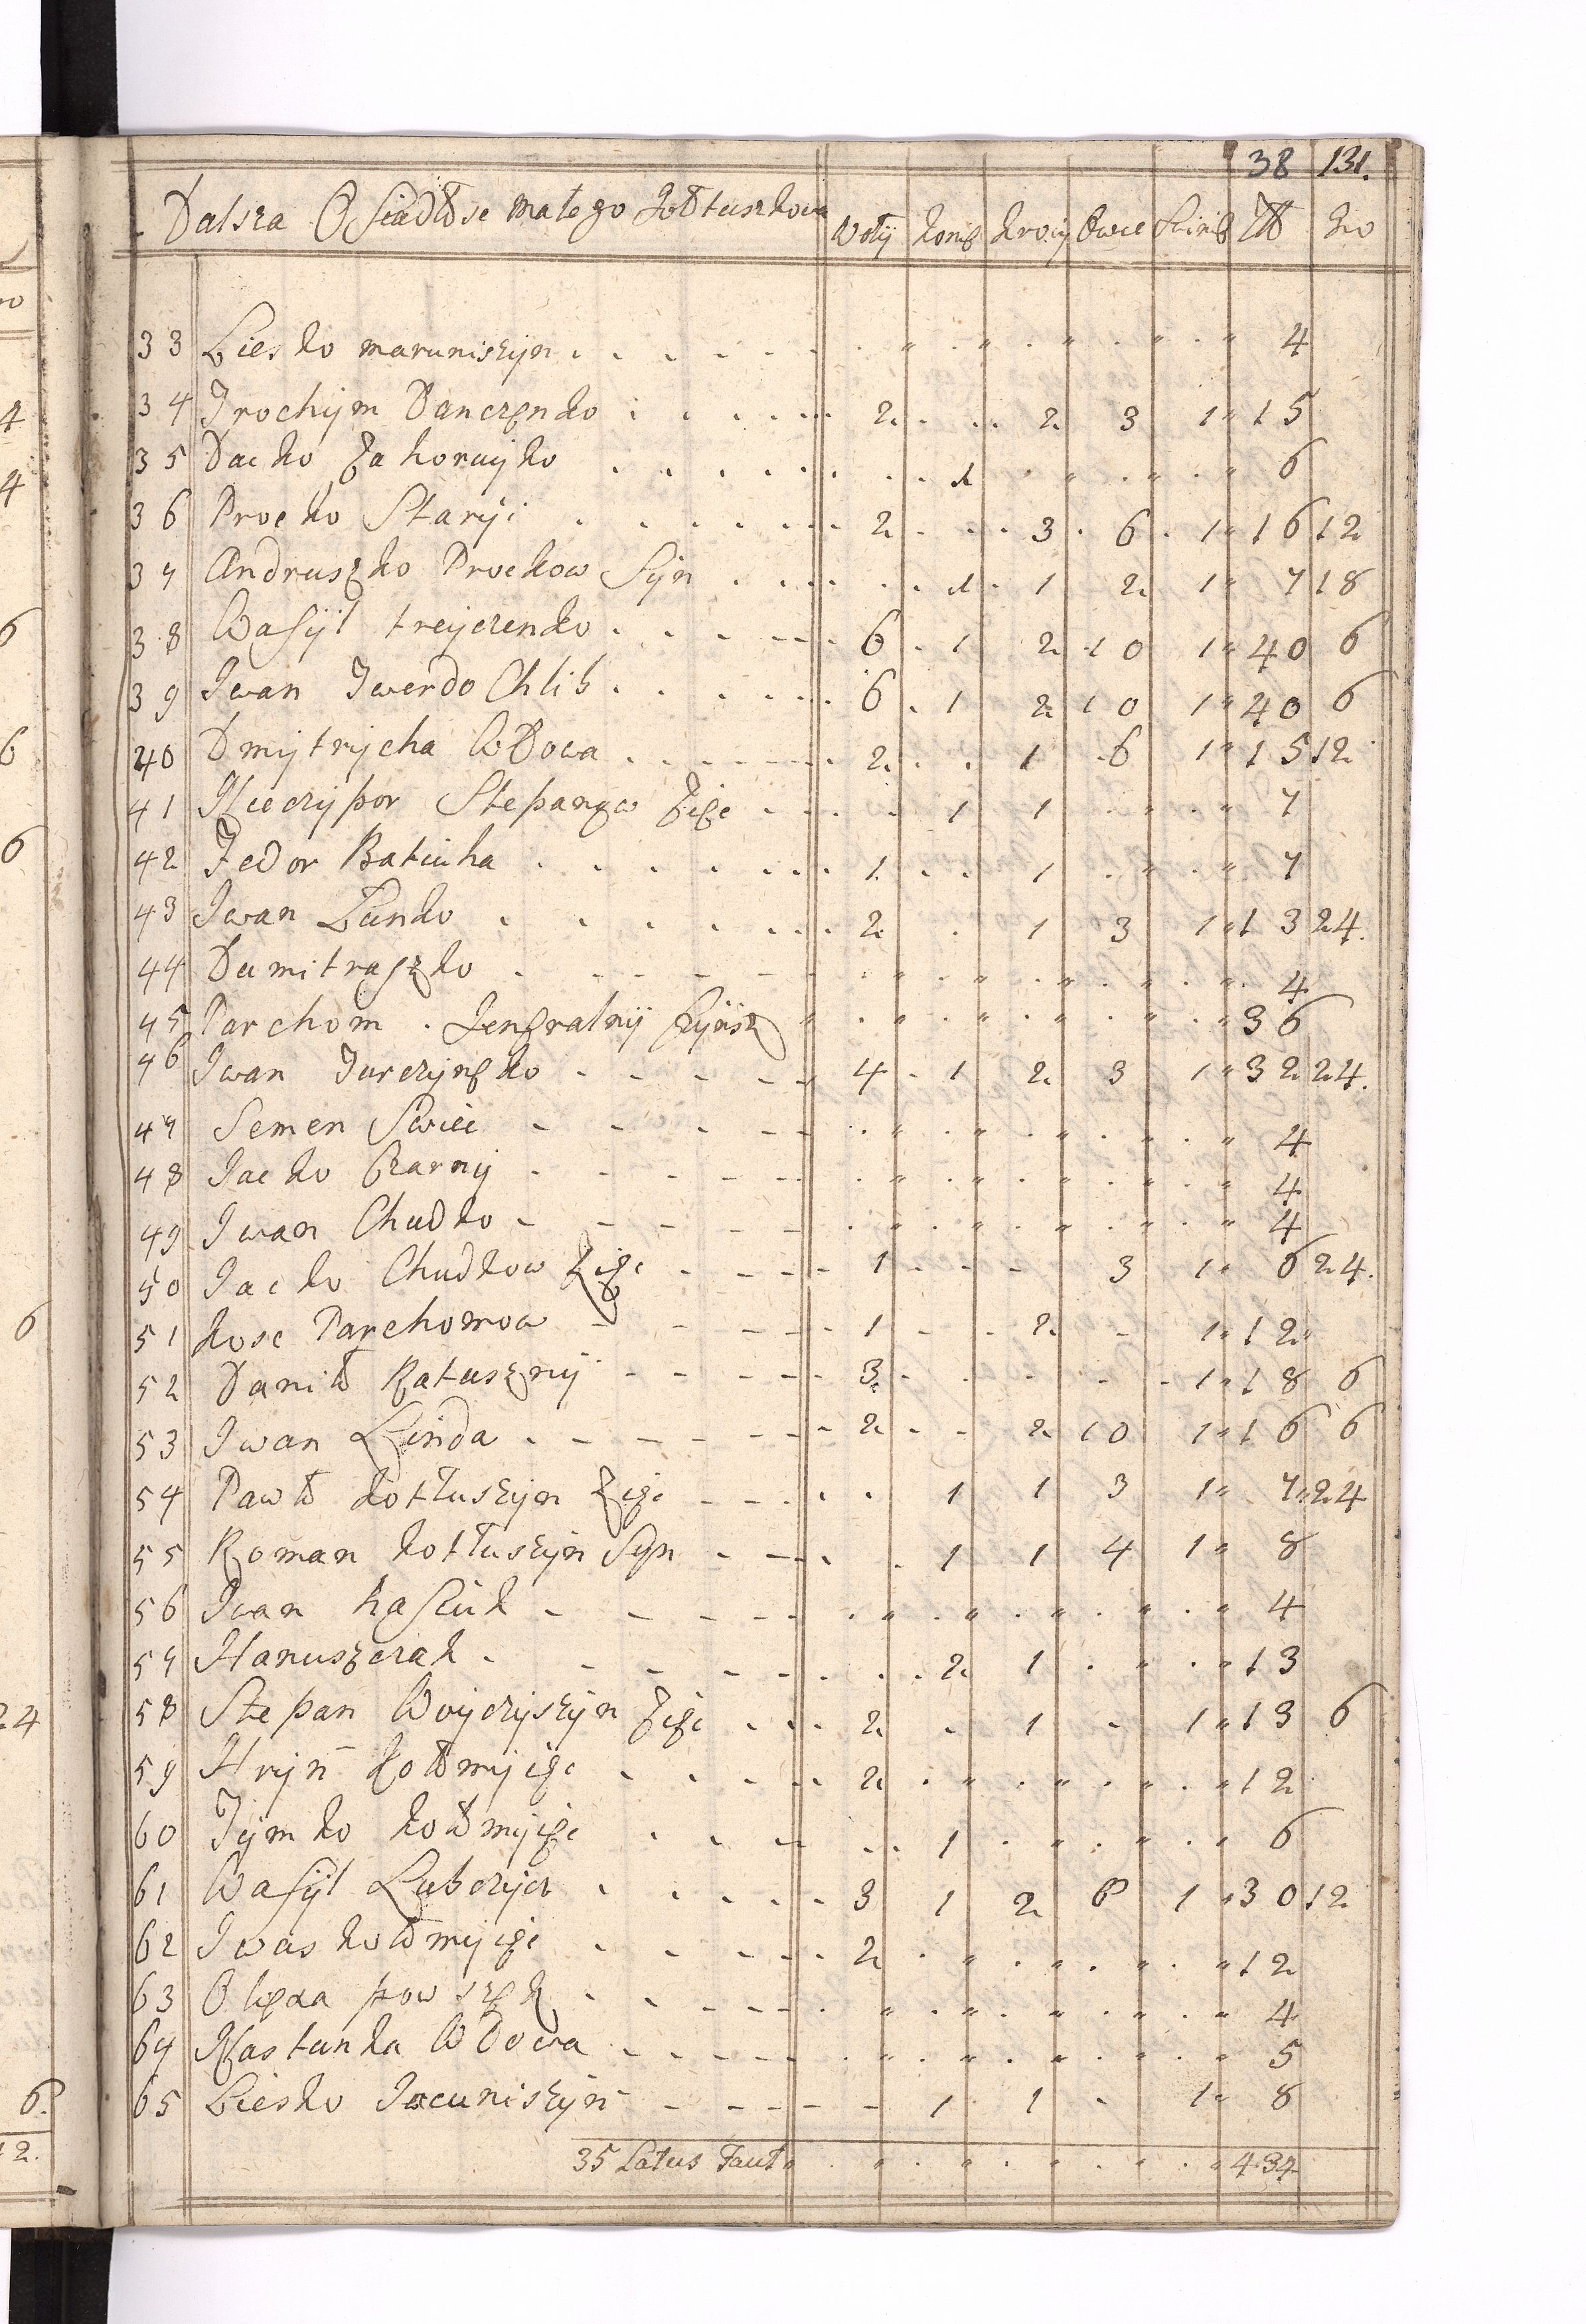 38 131.
Dalsza Osiadłose małego Jołtuszkowa Wołÿ Konie Krowÿ Owce Zł Gro
33 Lesko maruniszyn 4
34 Trochÿm Danczenko 2 2 3 1 15
35 Dacko Zahorujko 1 6
36 Procko Starÿi 2 3 6 1 16 12
37 Andruszko Prockow Sÿn 1 1 2 1 7 18
38 Wasÿl treÿczenko 6 1 2 10 1 40 6
39 Iwan Twerdo Chlib 6 1 2 10 1 40 6
40 Dmÿtrÿcha Wdowa 2 1 6 1 15 12
41 Nieczÿpor Stepanow Zięc 1 1 7
42 Fedor Batiuha 1 1 7
43 Iwan Lunko 2 1 3 1 13 24.
44 Dumitraszko 4
45 Parchom Jeneralnÿ Czÿnsz 36
46 Iwan Jurczÿnsko 4 1 2 3 1 32 24.
47 Semen 4
48 Jacko Czarnÿ 4
49 Iwan Chudko 4
50 Jacko Chudkow Zięc 1 3 1 6 24.
51 Kosc Parchomow 1 2 1 12
52 Danił Ratusznÿ 3 1 18 6
53 Iwan Linda 2 2 10 1 16 6
54 Pawło Kołtuszÿn Zięc 1 1 3 1 7 24
55 Roman Kołtuszÿn Sÿn 1 1 4 1 8
56 Iwan Kasciuk 4
57 Hanuszczak 2 1 13
58 Stepan Woÿczÿszÿn Zięc 2 1 1 13 6
59 Hrÿn Kołmÿiec 2 12
60 Tÿmko Kołmÿiec 1 6
61 Wasÿl Lubczÿcz 3 1 2 8 1 30 12
62 Iwas Kołmÿiec 2 12
63 4
64 Nastunka Wdowa 5
65 Lesko Jacuniszÿn 1 1 1 8
35 Latus Faut 434